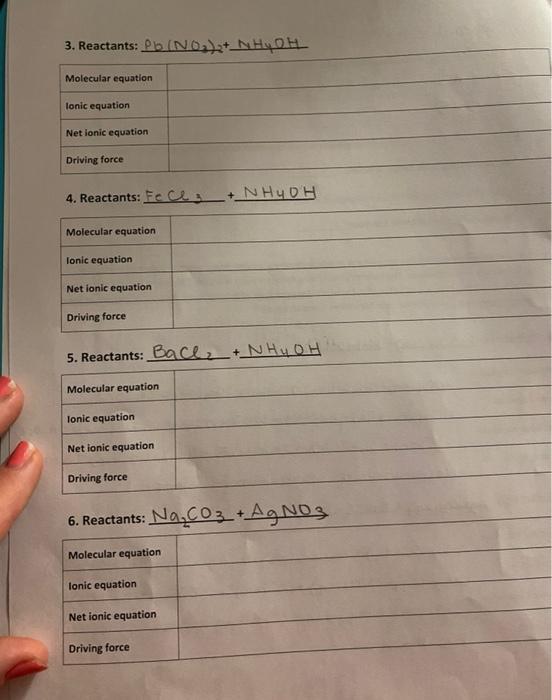 3. Reactants: Pb(NO3)2+ NH4OH
Molecular equation
Ionic equation
Net ionic equation
Driving force
4. Reactants: FeCl3 + NH4OH
Molecular equation
Ionic equation
Net ionic equation
Driving force
5. Reactants: BaCl2 + NH4OH
Molecular equation
Ionic equation
Net ionic equation
Driving force
6. Reactants: Na2CO3 + AgNO3
Molecular equation
Ionic equation
Net ionic equation
Driving force